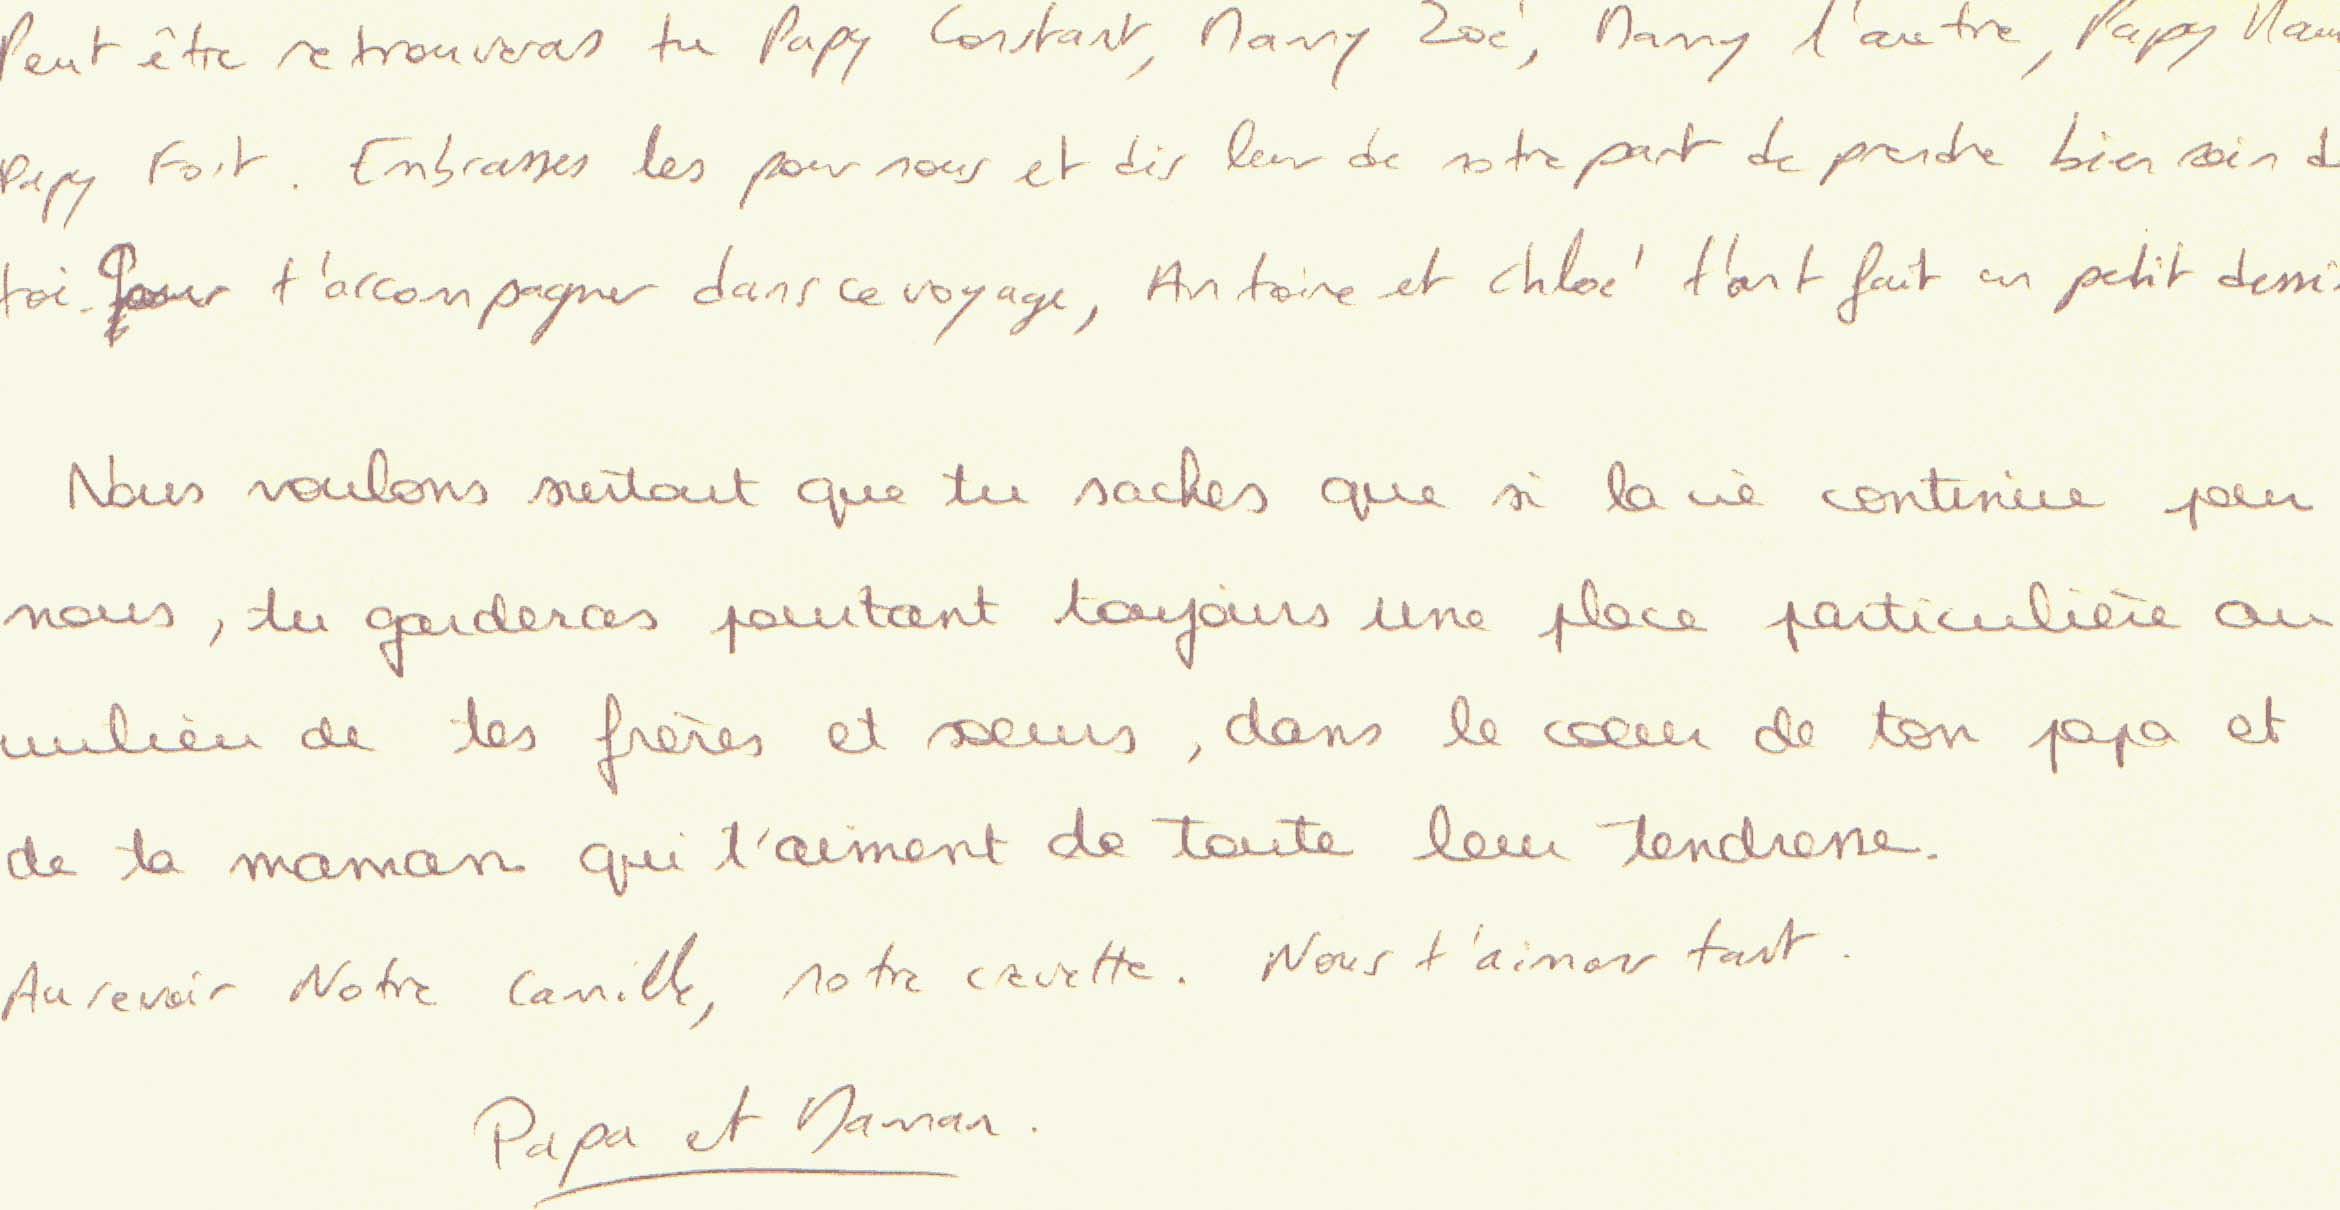 Peut être retrouveras tu Papy Constant, Mamy Zoé, Mamy l'autre, Papy
Papy Fort. Embrasses les pour nous et dis leur de notre part de prendre bien soin d
toi. Pour t'accompagner dans ce voyage, Antoine et Chloé t'ont fait un petit dessi
Nous voulons surtout que tu saches que si la vie continue pour
nous, tu garderas pourtant toujours une place particulière au
milieu de tes frères et soeurs, dans le coeur de ton papa et
de ta maman qui t'aiment de toute leur tendresse.
Au revoir Notre Camille, notre crevette. Nous t'aimons tant.
Papa et Maman.